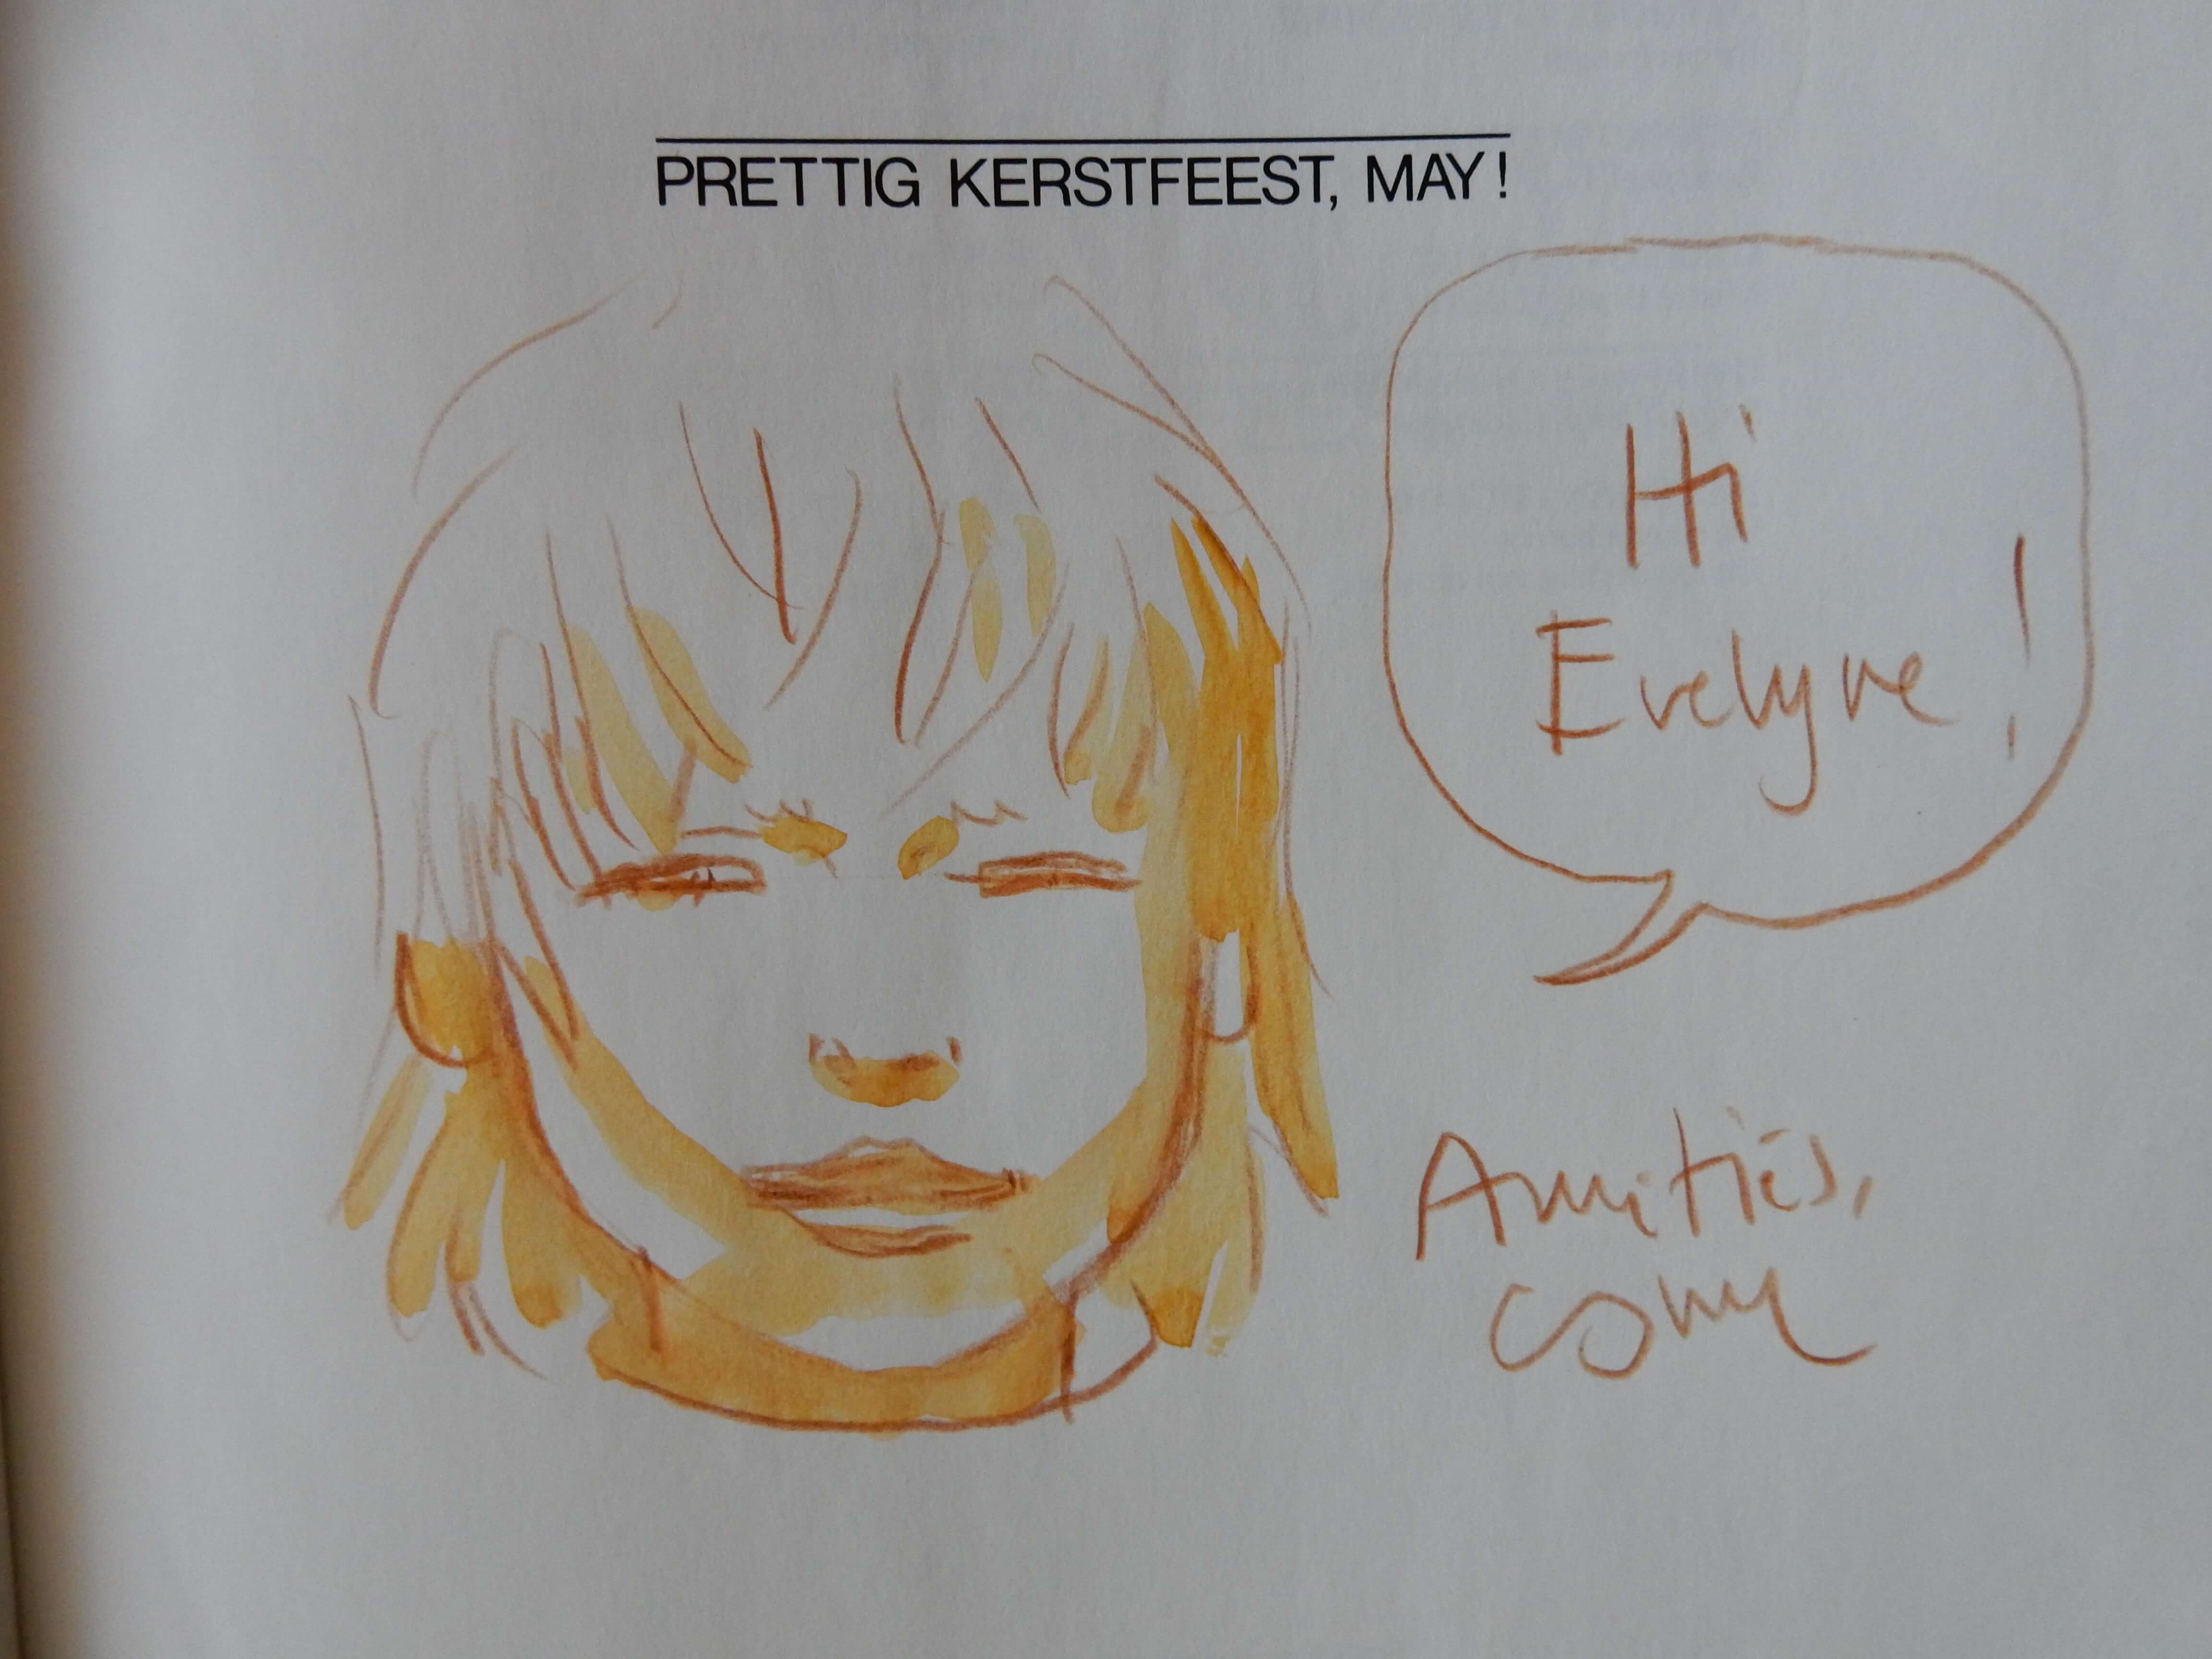 PRETTIG KERSTFEEST, MAY!
Hi
Evelyne!
Amitiés,